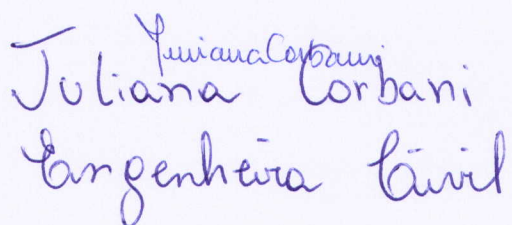 Juliana Corbani
Juliana Corbani
Engenheira Civil